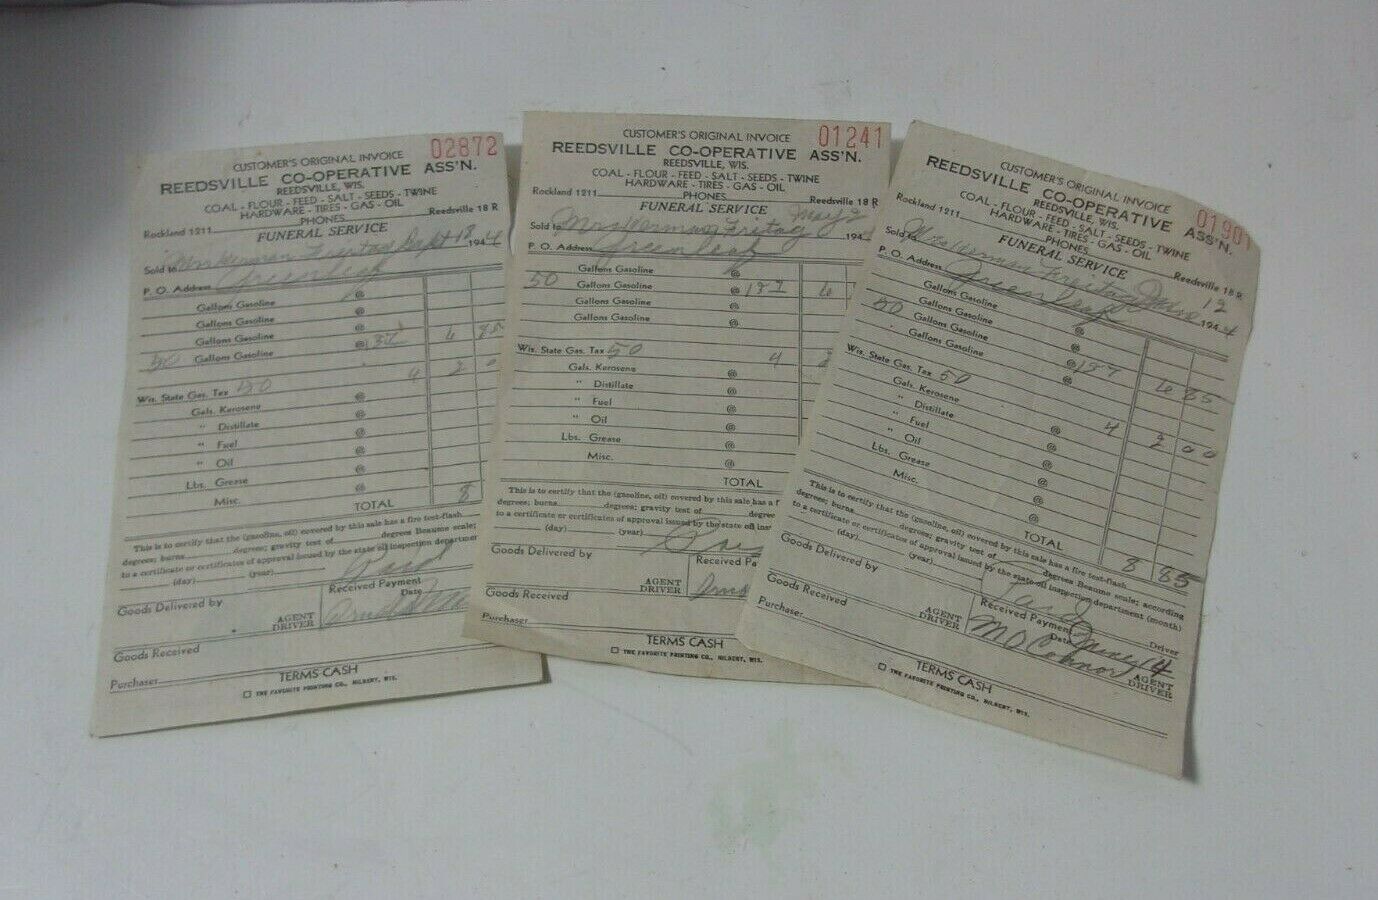 CUSTOMER'S ORIGINAL INVOICE 02872
REEDSVILLE CO-OPERATIVE ASS'N.
REEDSVILLE, WIS.
COAL - FLOUR - FEED - SALT - SEEDS - TWINE
HARDWARE - TIRES - GAS - OIL
Rockland 1211 PHONES Reedsville 18 R
FUNERAL SERVICE
Sold to Mrs Herman Freitag Sept 18 1944
P. O. Address Greenleaf
Gallons Gasoline @
Gallons Gasoline @
Gallons Gasoline @
50 Gallons Gasoline @ 137 6 85
Wis. State Gas. Tax 50 4 2 0
Gals. Kerosene @
" Distillate @
" Fuel @
" Oil @
Lbs. Grease @
Misc. @
TOTAL 8
This is to certify that the (gasoline, oil) covered by this sale has a fire test-flash
degrees; burns degrees; gravity test of degrees Beaume scale;
to a certificate or certificates of approval issued by the state oil inspection department
(day) (year)
Paid
Goods Delivered by Received Payment
AGENT
DRIVER
Goods Received
Purchaser
TERMS CASH
THE FAVORITE PRINTING CO., HILBERT, WIS.
CUSTOMER'S ORIGINAL INVOICE 01241
REEDSVILLE CO-OPERATIVE ASS'N.
REEDSVILLE, WIS.
COAL - FLOUR - FEED - SALT - SEEDS - TWINE
HARDWARE - TIRES - GAS - OIL
Rockland 1211 PHONES Reedsville 18 R
FUNERAL SERVICE
Sold to Mrs Herman Fritag May 2 194
P. O. Address Greenleaf
Gallons Gasoline @
50 Gallons Gasoline @ 137 6
Gallons Gasoline @
Gallons Gasoline @
Wis. State Gas. Tax 50 4 2
Gals. Kerosene @
" Distillate @
" Fuel @
" Oil @
Lbs. Grease @
Misc. @
TOTAL
This is to certify that the (gasoline, oil) covered by this sale has a f
degrees; burns degrees; gravity test of degree
to a certificate or certificates of approval issued by the state oil insp
(day) (year)
Goods Delivered by Received Pa
AGENT
DRIVER
Goods Received
Purchaser
TERMS CASH
THE FAVORITE PRINTING CO., HILBERT, WIS.
CUSTOMER'S ORIGINAL INVOICE 01901
REEDSVILLE CO-OPERATIVE ASS'N.
REEDSVILLE, WIS.
COAL - FLOUR - FEED - SALT - SEEDS - TWINE
HARDWARE - TIRES - GAS - OIL
Rockland 1211 PHONES Reedsville 18 R
FUNERAL SERVICE
Sold to Herman Freitag June 12 1944
P. O. Address Greenleaf
Gallons Gasoline @
Gallons Gasoline @
50 Gallons Gasoline @ 137 6 85
Gallons Gasoline @
Wis. State Gas. Tax 50 4 2 00
Gals. Kerosene @
" Distillate @
" Fuel @
" Oil @
Lbs. Grease @
Misc. @
TOTAL 8 85
This is to certify that the (gasoline, oil) covered by this sale has a fire test-flash
degrees; burns degrees; gravity test of degrees Beaume scale; according
to a certificate or certificates of approval issued by the state oil inspection department (month)
(day) (year) Driver
Paid
Goods Delivered by Received Payment
Date 14
M O Connor
AGENT
DRIVER
AGENT
DRIVER
Goods Received
Purchaser
TERMS CASH
THE FAVORITE PRINTING CO., HILBERT, WIS.